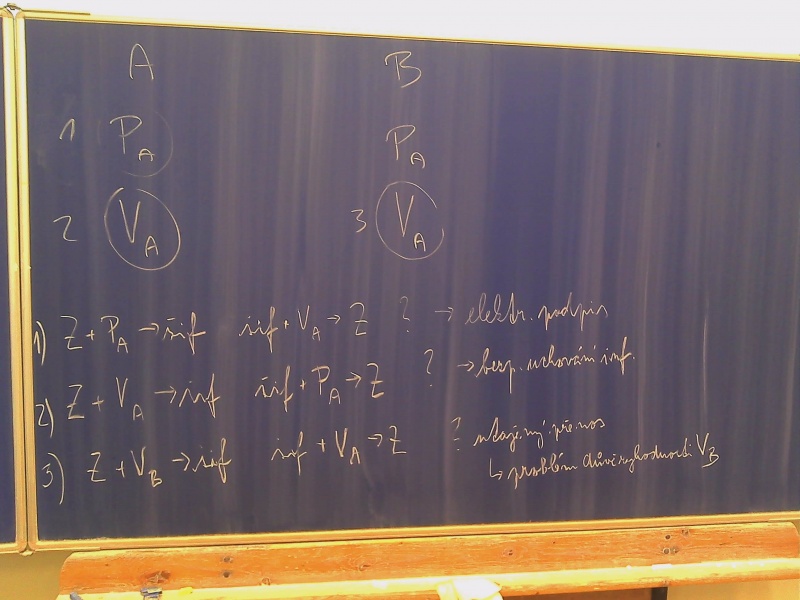 A B
1 P_A P_A
2 V_A 3 V_A
1) Z + P_A → šif šif + V_A → Z ? → elektr. podpis
2) Z + V_A → šif šif + P_A → Z ? → bezp. uchování inf.
3) Z + V_B → šif šif + V_A → Z ? utajený přenos
↳ problém důvěryhodnosti V_B